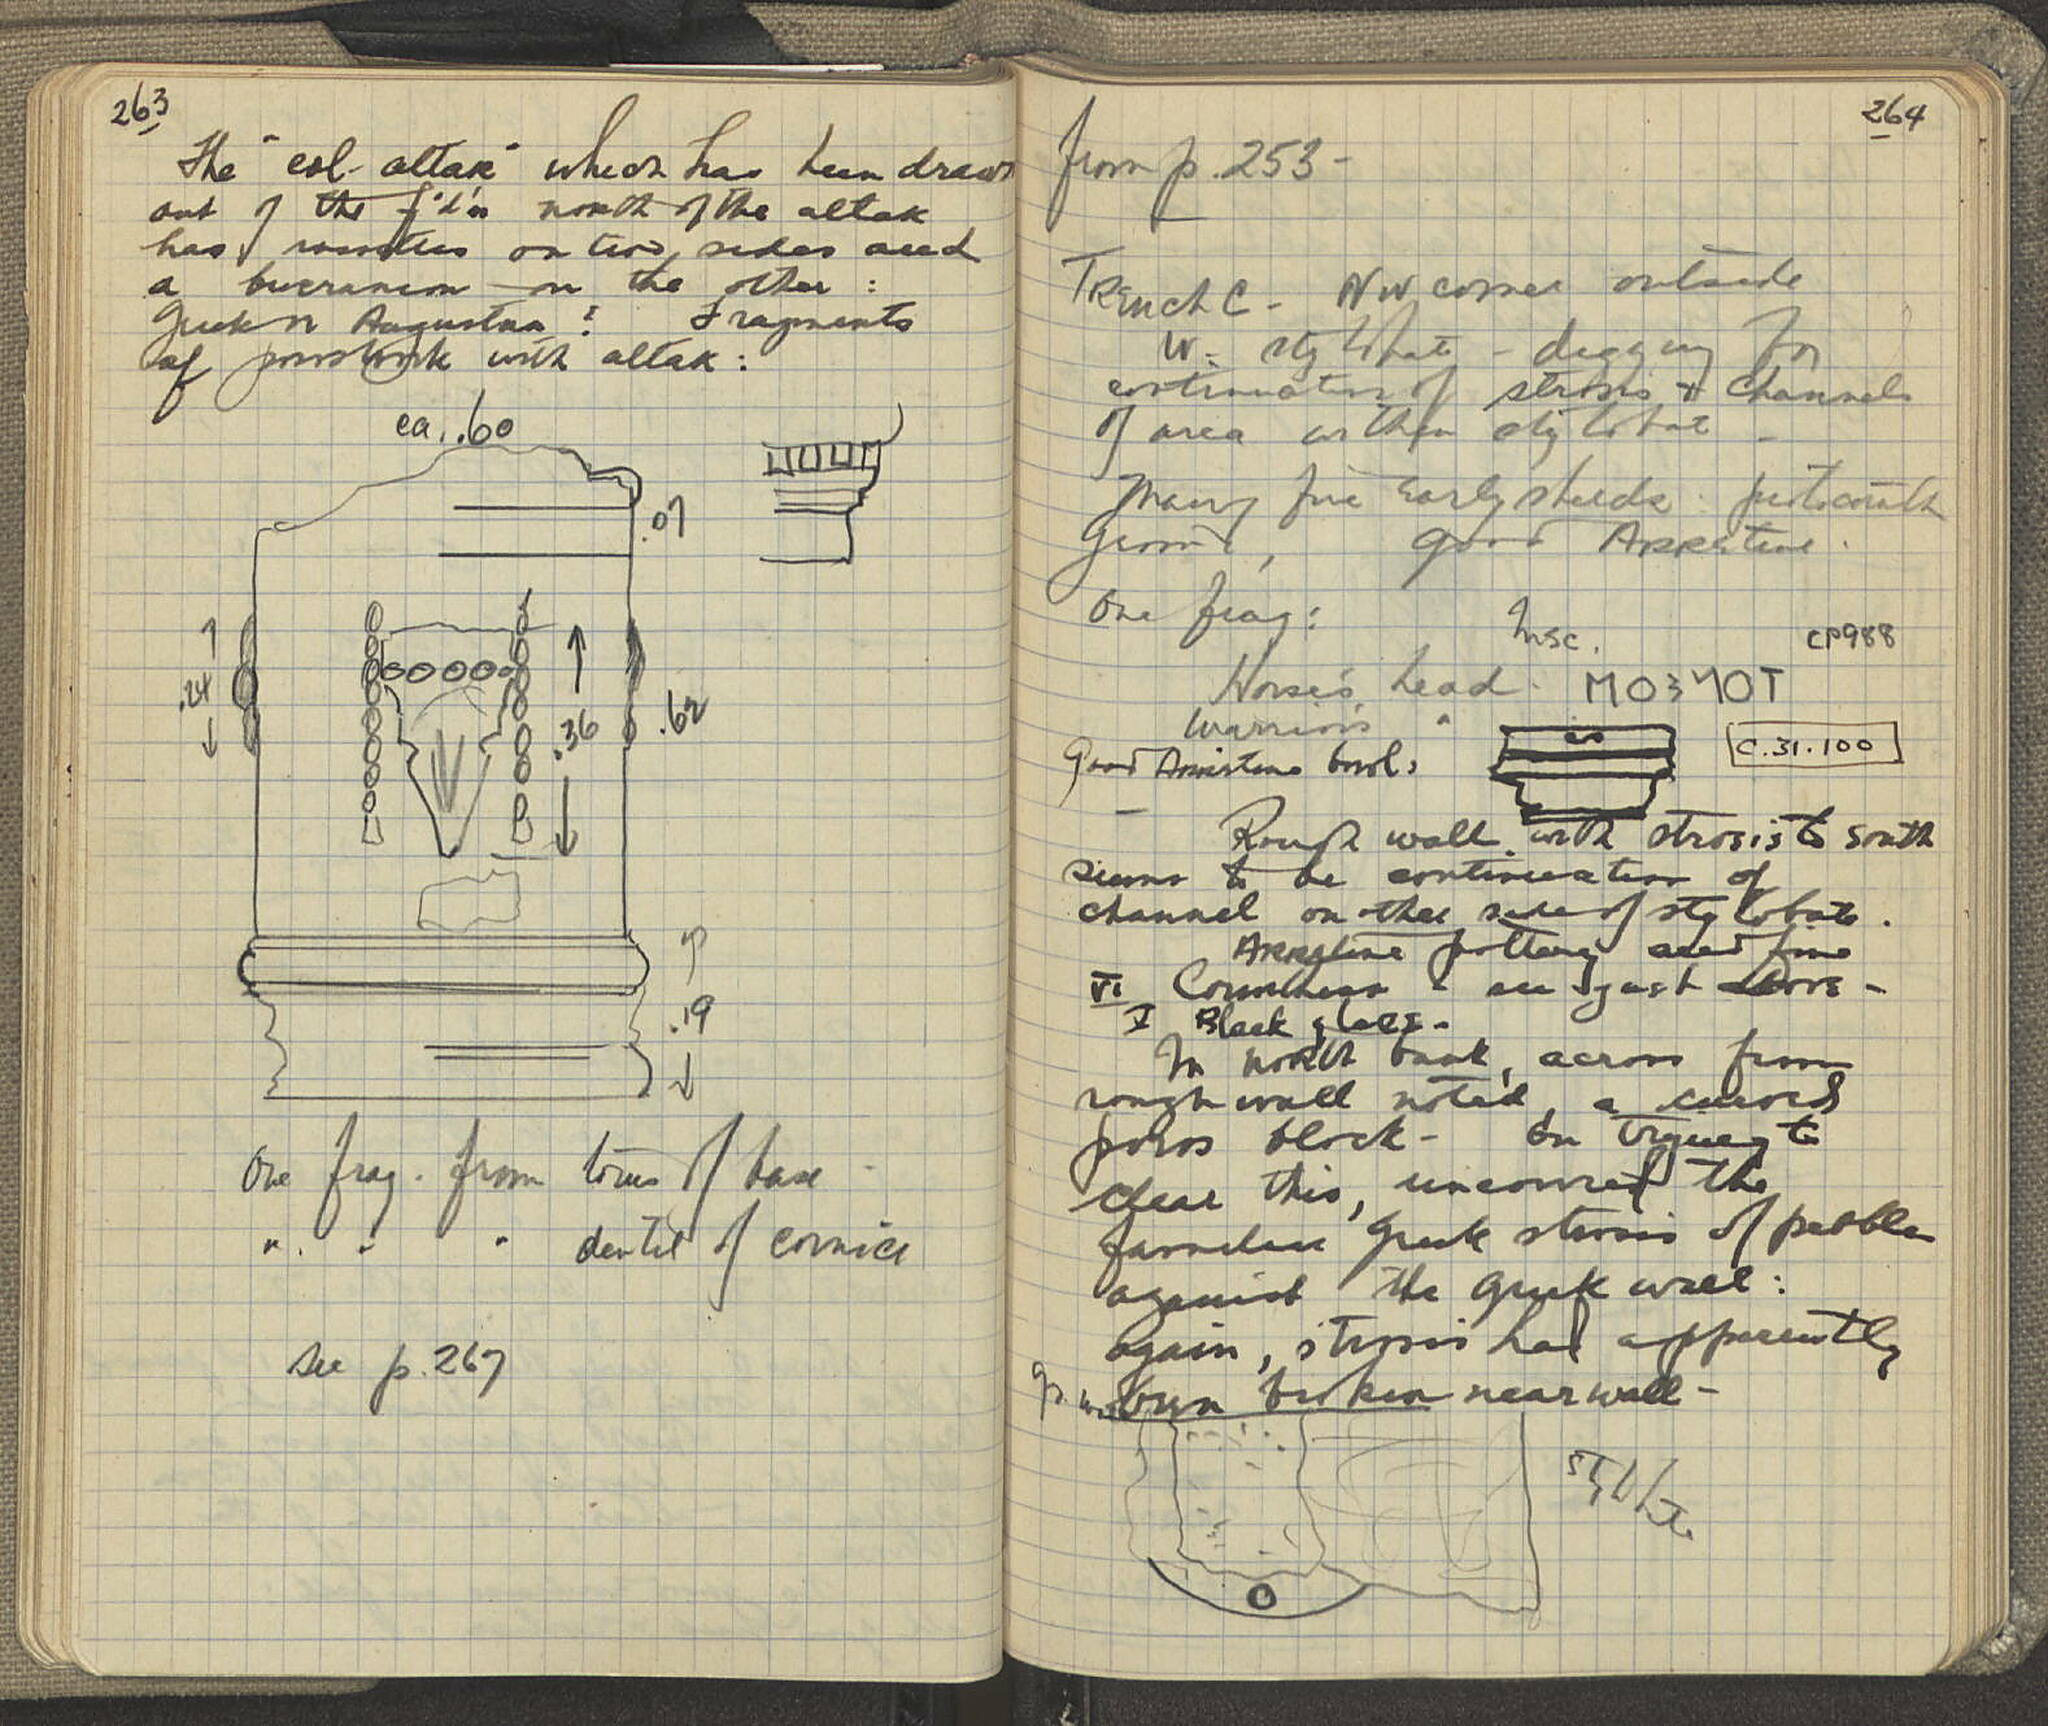 263
The "col. altar" which has been drawn
out of the f'd'n north of the altar
has rosettes on two sides and
a bucranion on the other :
Greek or Augustan ? Fragments
of poros work with altar :
ca. .60
.07
.24
.36
.62
.19
One frag. from torus of base -
" " " dentil of cornice
see p. 267
264
from p. 253 -
TRENCH C - NW corner outside
W. stylobate - digging for
continuation of strosis + channels
of area within stylobate -
Many fine early sherds :
Good Arretine.
One frag :
Insc.
CP988
Horse's head -
Warrior's "
Good Arretine bowl :
C.31.100
Rough wall with strosis to south
seems to be continuation of
channel on other side of stylobate.
Arretine pottery and fine
VI Corinthian - see just above -
V Black glaze -
In north bank, across from
rough wall noted, a curved
poros block - In trying to
clear this, uncovered the
familiar Greek strosis of pebbles
against the Greek wall :
again, strosis had apparently
been broken near wall -